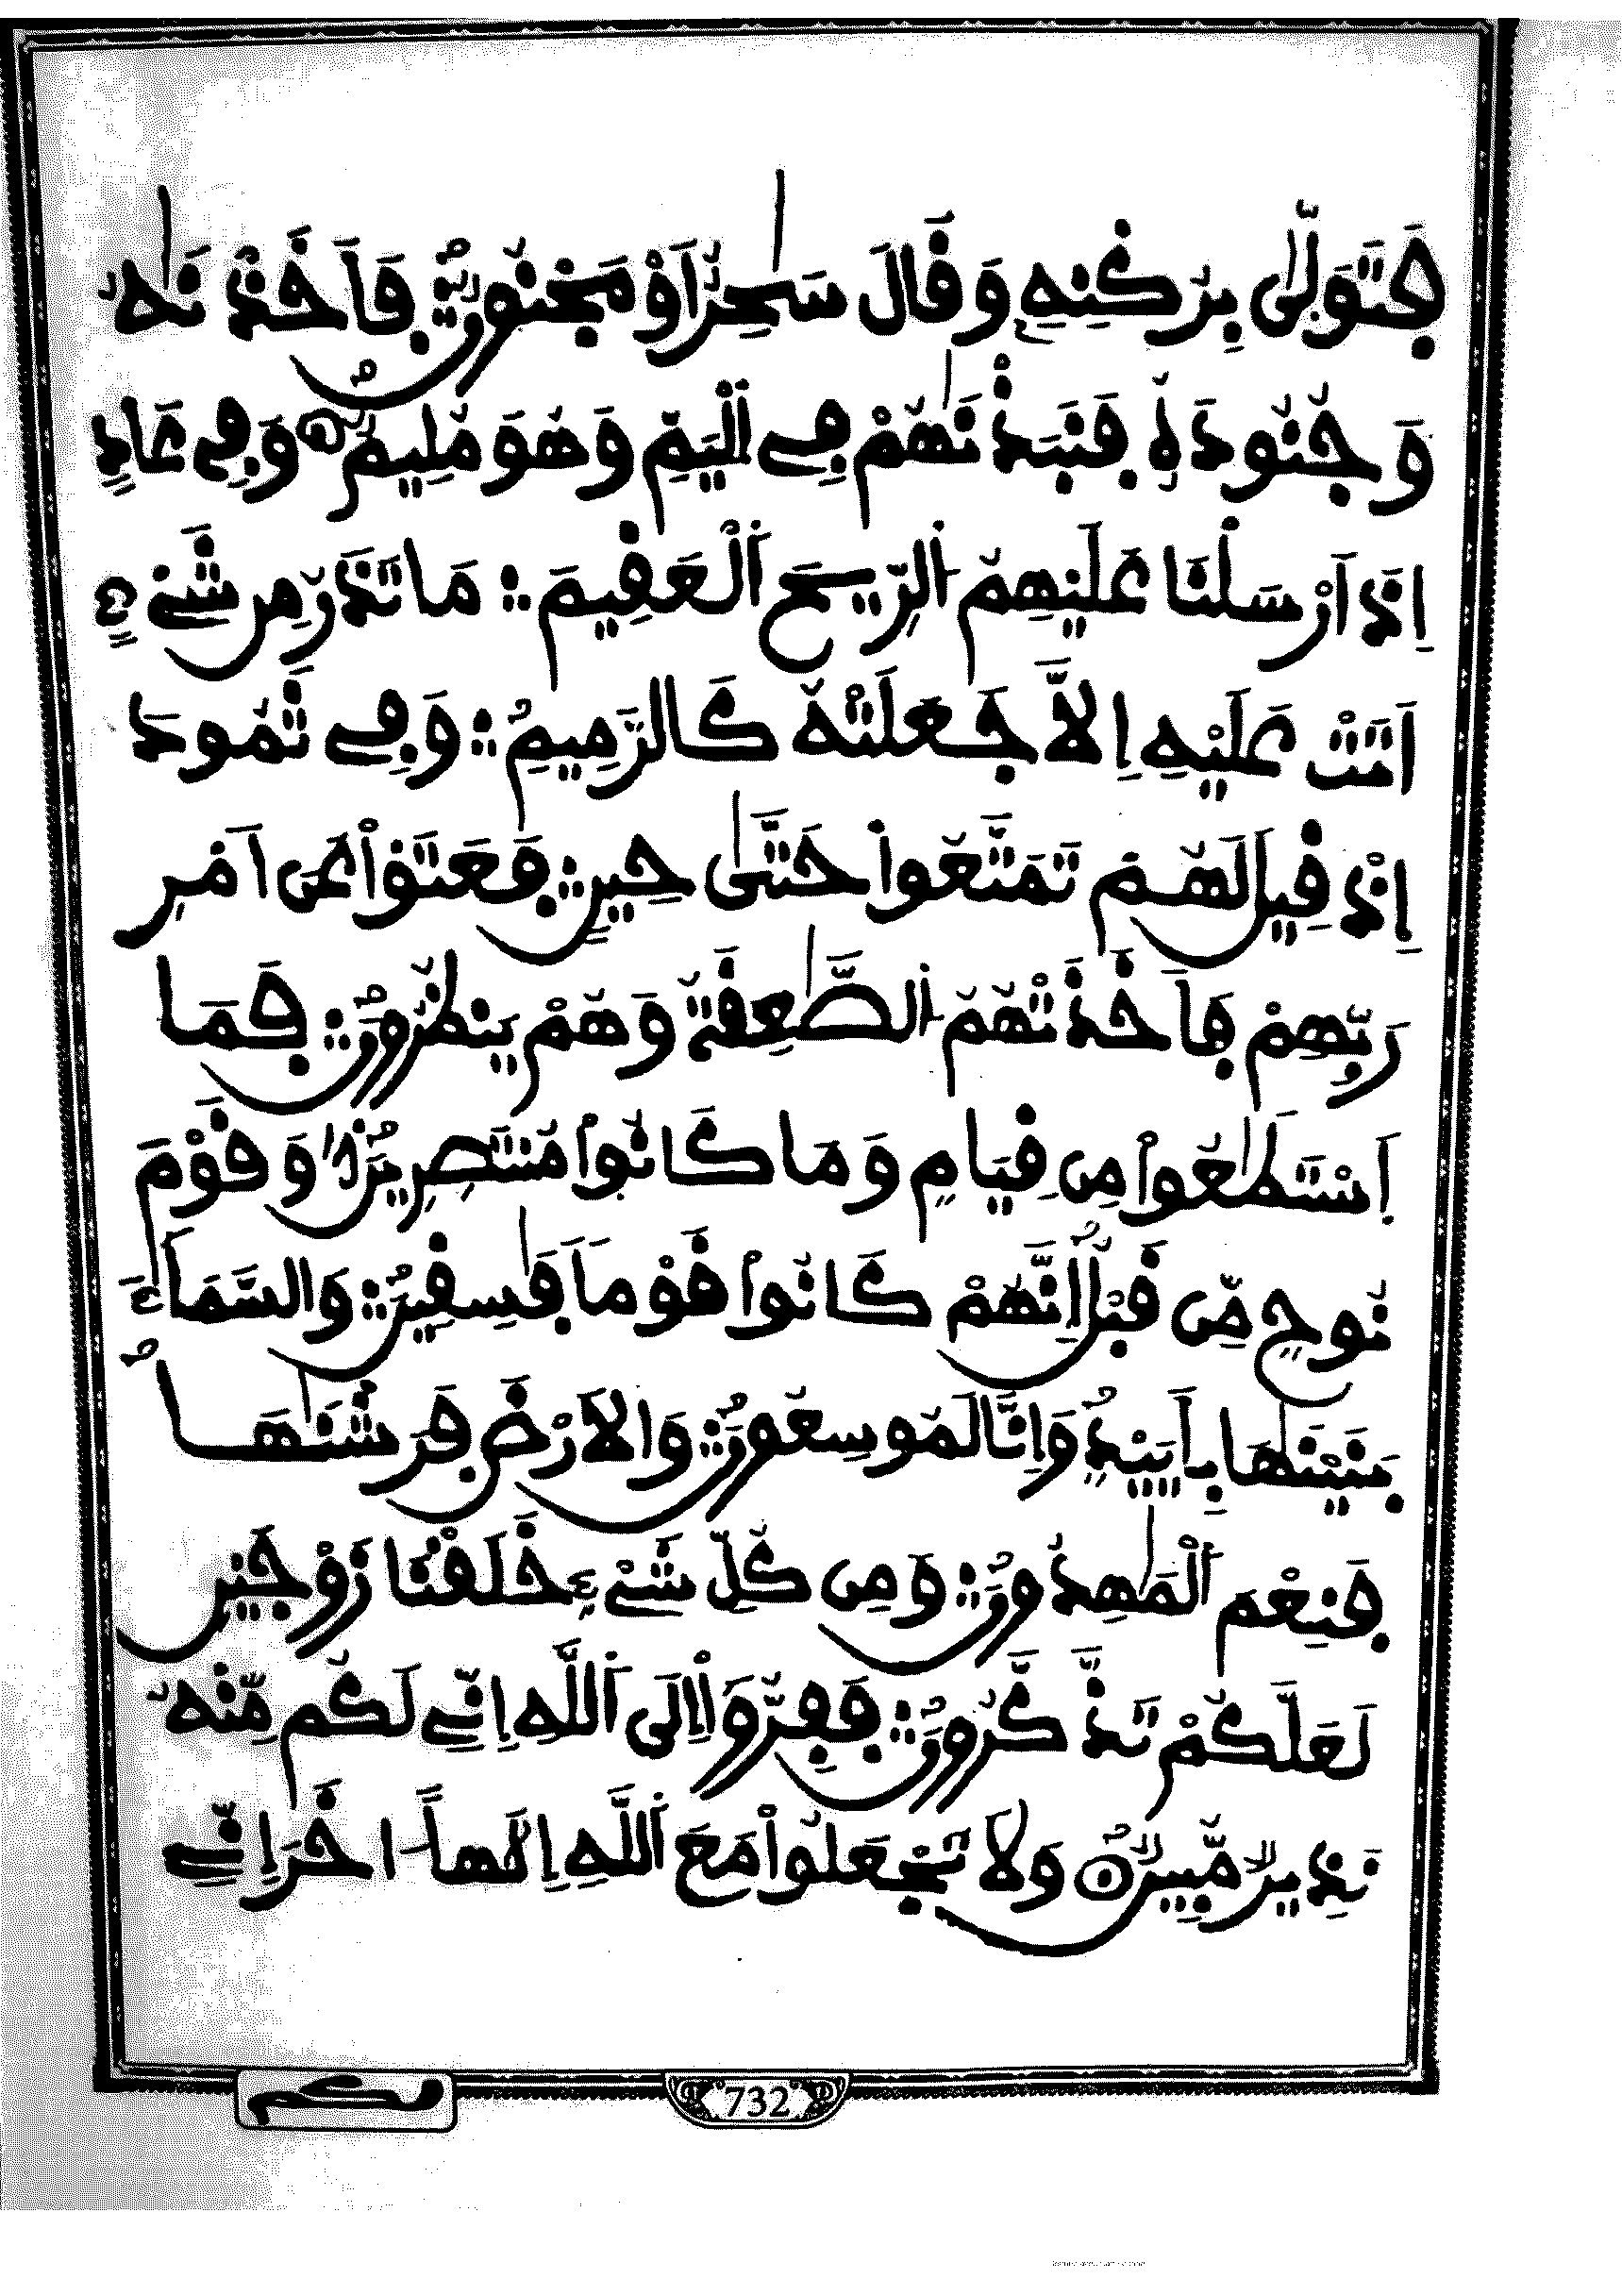 فَتَوَلَّىٰ بِرُكْنِهِ وَقَالَ سَٰحِرٌ اَوْ مَجْنُونٌ فَأَخَذْنَٰهُ
وَجُنُودَهُۥ فَنَبَذْنَٰهُمْ فِے اِ۬لْيَمِّ وَهُوَ مُلِيمٌ وَفِے عَادٍ
اِذَ اَرْسَلْنَا عَلَيْهِمُ اُ۬لرِّيحَ اَ۬لْعَقِيمَ مَا تَذَرُ مِن شَےْءٍ
اَتَتْ عَلَيْهِ إِلَّا جَعَلَتْهُ كَالرَّمِيمِ وَفِے ثَمُودَ
إِذْ قِيلَ لَهُمْ تَمَتَّعُواْ حَتَّىٰ حِينٍ فَعَتَوْاْ عَنَ اَمْرِ
رَبِّهِمْ فَأَخَذَتْهُمُ اُ۬لصَّٰعِقَةُ وَهُمْ يَنظُرُونَ فَمَا
اَ۪سْتَطَٰعُواْ مِن قِيَامٍ وَمَا كَانُواْ مُنتَصِرِينَ وَقَوْمَ
نُوحٍ مِّن قَبْلُ إِنَّهُمْ كَانُواْ قَوْماً فَٰسِقِينَ وَالسَّمَآءَ
بَنَيْنَٰهَا بِأَيْيْدٍ وَإِنَّا لَمُوسِعُونَ وَالَارْضَ فَرَشْنَٰهَا
فَنِعْمَ اَ۬لْمَٰهِدُونَ وَمِن كُلِّ شَےْءٍ خَلَقْنَا زَوْجَيْنِ
لَعَلَّكُمْ تَذَّكَّرُونَ فَفِرُّوٓاْ إِلَى اَ۬للَّهِ إِنِّے لَكُم مِّنْهُ
نَذِيرٌ مُّبِينٌ وَلَا تَجْعَلُواْ مَعَ اَ۬للَّهِ إِلَٰهاً اٰخَرَ إِنِّے
لَكُم
732